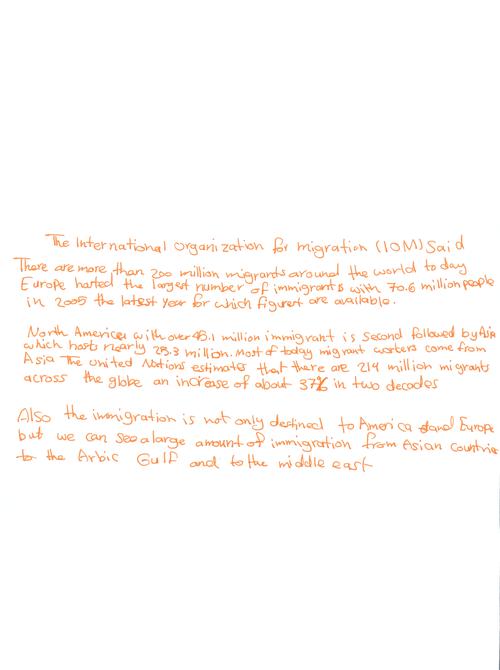 The International Organization for migration (IOM) Said
There are more than 200 million migrants around the world today
Europe hosted the largest number of immigrants with 70.6 million people
in 2005 the latest year for which figures are available.
North America with over 45.1 million immigrant is second followed by Asia
which hosts nearly 25.3 million. Most of today migrant workers come from
Asia The United Nations estimates that there are 214 million migrants
across the globe an increase of about 37% in two decades
Also the immigration is not only destined to America and Europe
but we can see a large amount of immigration from Asian countries
to the Arbic Gulf and to the middle east